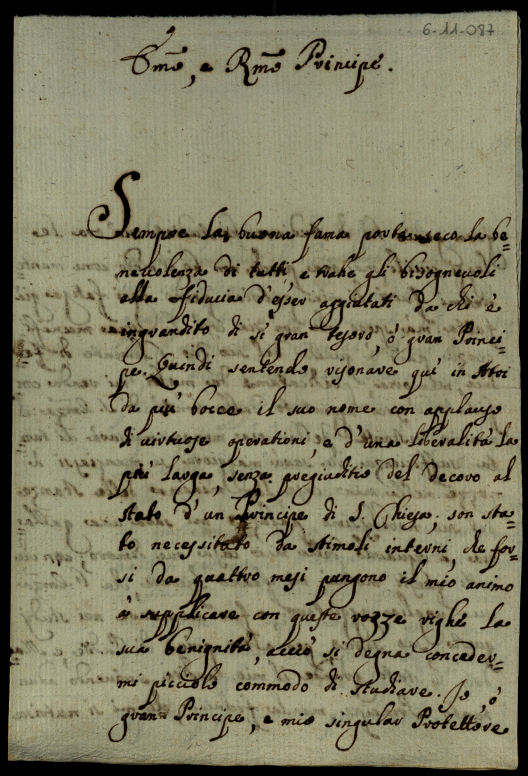 6-11-087
Emo, e Rmo Principe.
Sempre la buona fama porta seco la be=
nevolenza di tutti e trahe gli bisognevoli
alla fiducia d'esser aggiutati da chi è
ingrandito di sì gran tesoro, ò gran Princi=
pe. Quindi sentendo risonare quì in Atri
da più bocce il suo nome con applauso
di virtuose operationi, e d'una liberalità la
più larga, senza pregiuditio del decoro al
stato d'un Principe di S. Chiesa, son sta=
to necessitato da stimoli interni, che for=
si da quattro mesi pungono il mio animo
à supplicare con queste rozze righe la
sua benignità, acciò si degna conceder=
mi piccolo commodo di studiare. Io, ò
gran Principe, e mio singular Protettore